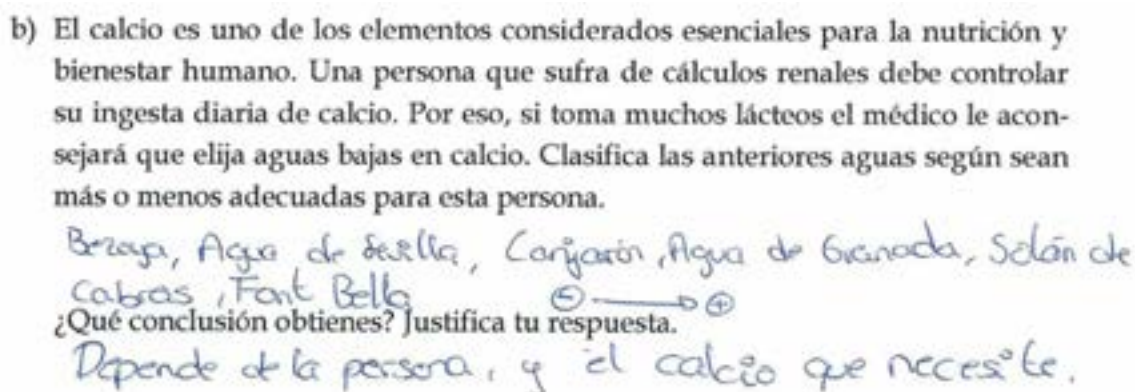 b) El calcio es uno de los elementos considerados esenciales para la nutrición y
bienestar humano. Una persona que sufra de cálculos renales debe controlar
su ingesta diaria de calcio. Por eso, si toma muchos lácteos el médico le acon-
sejará que elija aguas bajas en calcio. Clasifica las anteriores aguas según sean
más o menos adecuadas para esta persona.
Bezoya, Agua de Sevilla, Lanjarón, Agua de Granada, Solán de
Cabras, Font Bella ⊖→⊕
¿Qué conclusión obtienes? Justifica tu respuesta.
Depende de la persona, y el calcio que necesite.